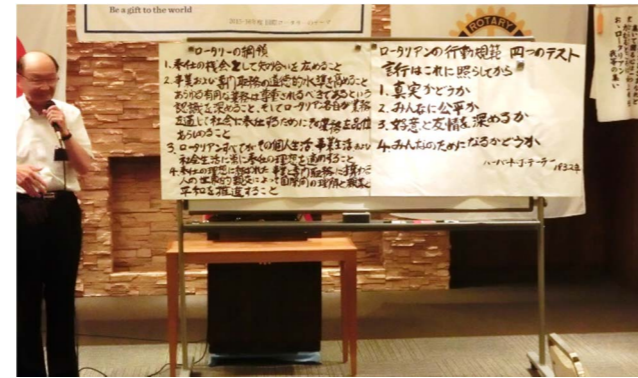 Be a gift to the world
ROTARY
ロータリーの綱領
1. 奉仕の機会として知り合いを広めること
2. 事業および専門職務の道徳的水準を高めること
あらゆる有用な業務は尊重されるべきであるという
認識を深めること、そしてロータリアン各自が業務
を通じて社会に奉仕するためにその業務を品位
あらしめること
3. ロータリアンすべてがその個人生活 事業生活および
社会生活に常に奉仕の理想を
4. 奉仕の理想に結ばれた 事業と専門職務に携わる
人の世界的親交によって国際間の理解と親善と
平和を推進すること
ロータリアンの行動規範 四つのテスト
言行はこれに照らしてから
1. 真実かどうか
2. みんなに公平か
3. 好意と友情を深めるか
4. みんなのためになるかどうか
ハーバート・J・テーラー
1932年